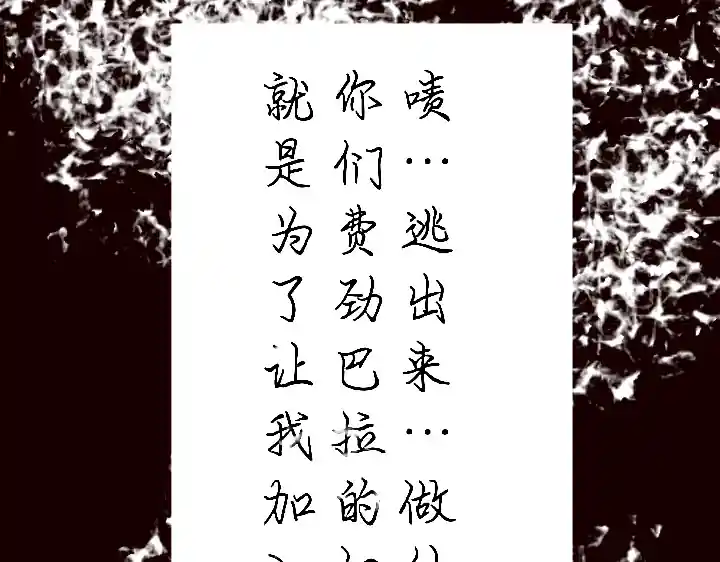 啧…逃出来…做
你们费劲巴拉的
就是为了让我加